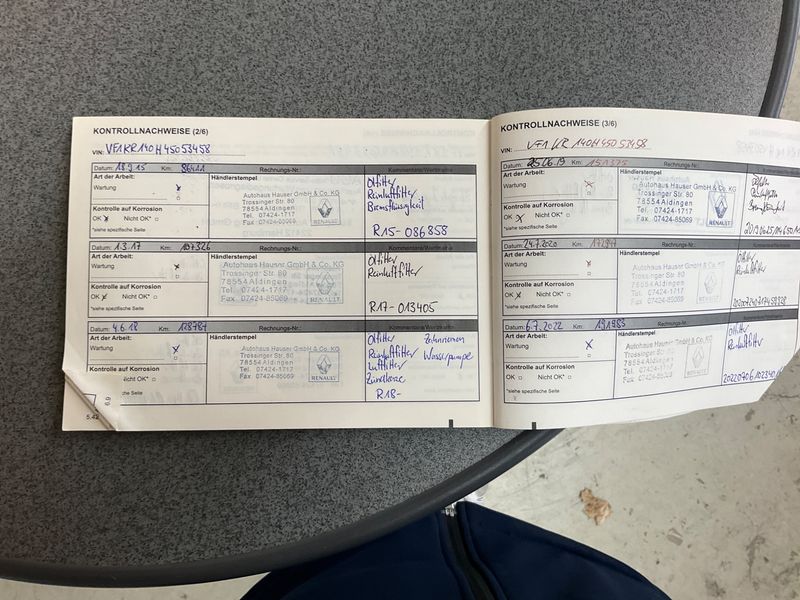 KONTROLLNACHWEISE (2/6)
VIN: VF1KR140H45053458
Datum: 18.9.15 Km: 86411 Rechnungs-Nr.:
Art der Arbeit: Händlerstempel Kommentare/Wortmarke
Wartung x
Autohaus Hauser GmbH & Co. KG
Trossinger Str. 80
78554 Aldingen
Tel. 07424-1717
Fax 07424-85069
RENAULT
Ölfilter
Reinluftfilter
Bremsflüssigkeit
R15-086858
Kontrolle auf Korrosion
OK x Nicht OK* □
*siehe spezifische Seite
Datum: 1.3.17 Km: 107326 Rechnungs-Nr.:
Art der Arbeit: Händlerstempel
Wartung x
Autohaus Hauser GmbH & Co. KG
Trossinger Str. 80
78554 Aldingen
Tel. 07424-1717
Fax 07424-85069
RENAULT
Ölfilter
Reinluftfilter
R17-013405
Kontrolle auf Korrosion
OK x Nicht OK* □
*siehe spezifische Seite
Datum: 4.6.18 Km: Rechnungs-Nr.:
Art der Arbeit: Händlerstempel
Wartung x
Autohaus Hauser GmbH & Co. KG
Trossinger Str. 80
78554 Aldingen
Tel. 07424-1717
Fax 07424-85069
RENAULT
Ölfilter Zahnriemen
Reinluftfilter Wasserpumpe
Luftfilter
Zündkerze
R18-
Kontrolle auf Korrosion
icht OK* □
*spezifische Seite
5.42
6.9
KONTROLLNACHWEISE (3/6)
VIN: VF1KR140H45053458
Datum: 25.06.19 Km: 151375 Rechnungs-Nr.:
Art der Arbeit: Händlerstempel
Wartung x
Autohaus Hauser GmbH & Co. KG
Trossinger Str. 80
78554 Aldingen
Tel. 07424-1717
Fax 07424-85069
RENAULT
Ölfilter
Bremsflüssigkeit
Kontrolle auf Korrosion
OK x Nicht OK* □
*siehe spezifische Seite
Datum: 24.7.2020 Km: Rechnungs-Nr.:
Art der Arbeit: Händlerstempel
Wartung x
Autohaus Hauser GmbH & Co. KG
Trossinger Str. 80
78554 Aldingen
Tel. 07424-1717
Fax 07424-85069
RENAULT
Ölfilter
Reinluftfilter
Kontrolle auf Korrosion
OK x Nicht OK* □
*siehe spezifische Seite
Datum: 6.7.2022 Km: 191983 Rechnungs-Nr.:
Art der Arbeit: Händlerstempel
Wartung x
Autohaus Hauser GmbH & Co. KG
Trossinger Str. 80
78554 Aldingen
Tel. 07424-1717
Fax 07424-85069
RENAULT
Ölfilter
Reinluftfilter
Kontrolle auf Korrosion
OK □ Nicht OK* □
*siehe spezifische Seite